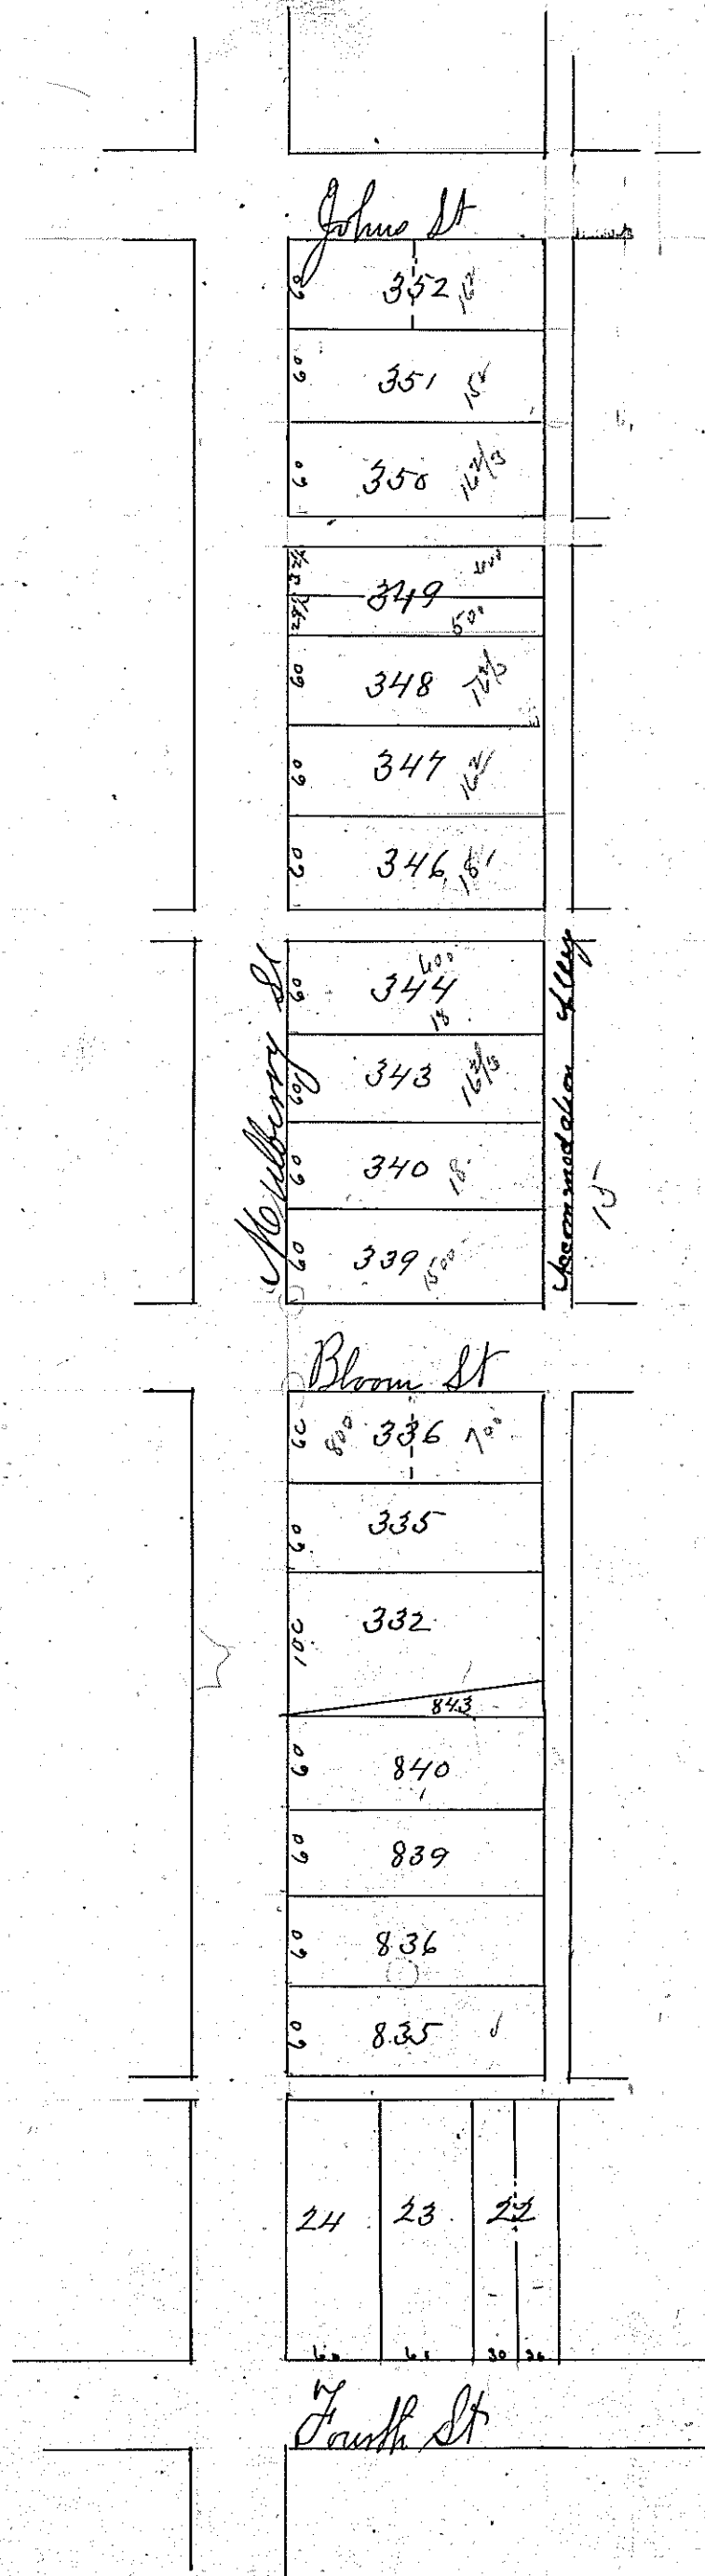 Johns St
60 352
60 351 15
60 350 16 2/3
349 400
500
60 348 16 2/3
60 347
60 346 18
Mulberry St
Accommodation Alley
15
60 344 600
18
60 343 16 2/3
60 340 18
60 339 1500
Bloom St
60 800 336 700
60 335
100 332
843
60 840
60 839
60 836
60 835
24 23 22
60 30
Fourth St